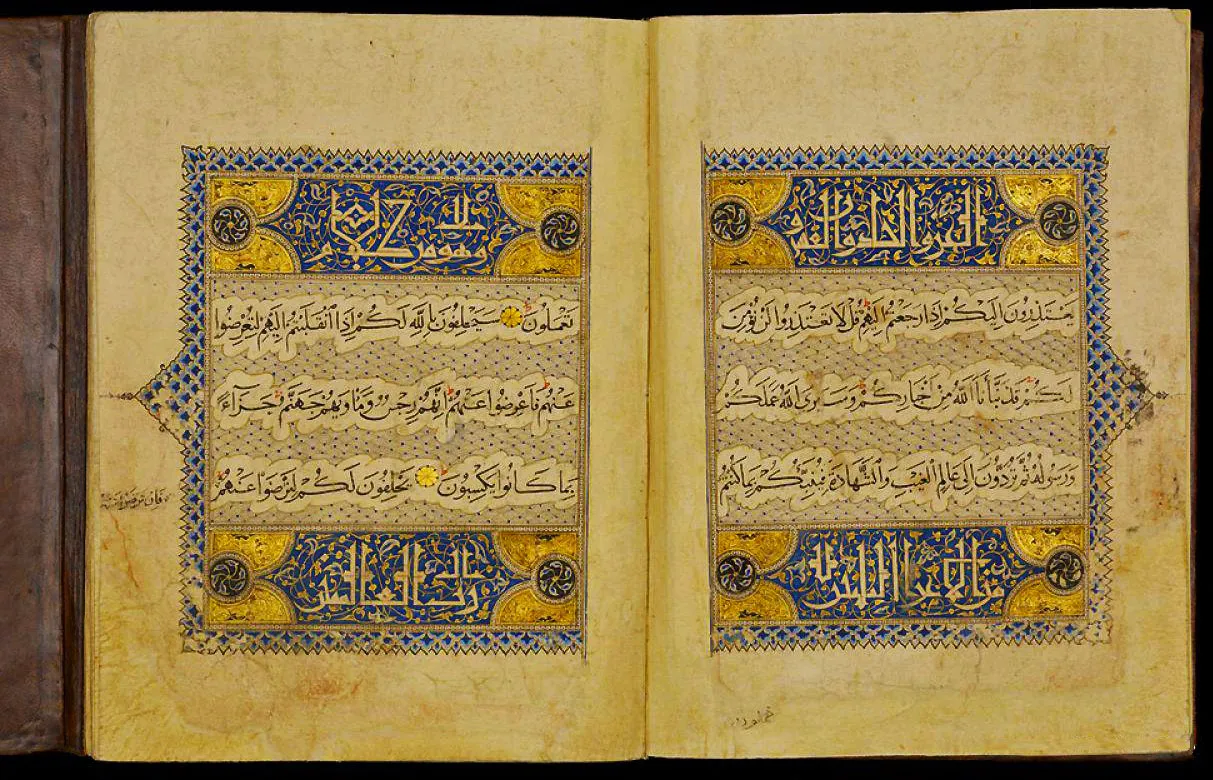 الجزو الحادي والعشرون
يَعْتَذِرُونَ إِلَيْكُمْ إِذَا رَجَعْتُمْ إِلَيْهِمْ قُلْ لَا تَعْتَذِرُوا لَنْ نُؤْمِنَ
لَكُمْ قَدْ نَبَّأَنَا اللَّهُ مِنْ أَخْبَارِكُمْ وَسَيَرَى اللَّهُ عَمَلَكُمْ
وَرَسُولُهُ ثُمَّ تُرَدُّونَ إِلَى عَالِمِ الْغَيْبِ وَالشَّهَادَةِ فَيُنَبِّئُكُمْ بِمَا كُنْتُمْ
من الاجزا الستين
تعملون
تَعْمَلُونَ سَيَحْلِفُونَ بِاللَّهِ لَكُمْ إِذَا انْقَلَبْتُمْ إِلَيْهِمْ لِتُعْرِضُوا
عَنْهُمْ فَأَعْرِضُوا عَنْهُمْ إِنَّهُمْ رِجْسٌ وَمَأْوَيهُمْ جَهَنَّمُ جَزَاءً
بِمَا كَانُوا يَكْسِبُونَ يَحْلِفُونَ لَكُمْ لِتَرْضَوْا عَنْهُمْ